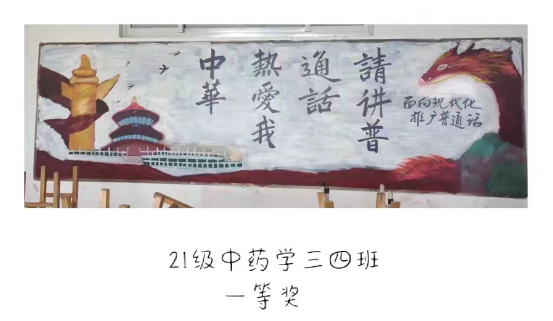 請讲普
通話
熱愛我
中華
面向现代化
推广普通话
21级中药学三四班
一等奖